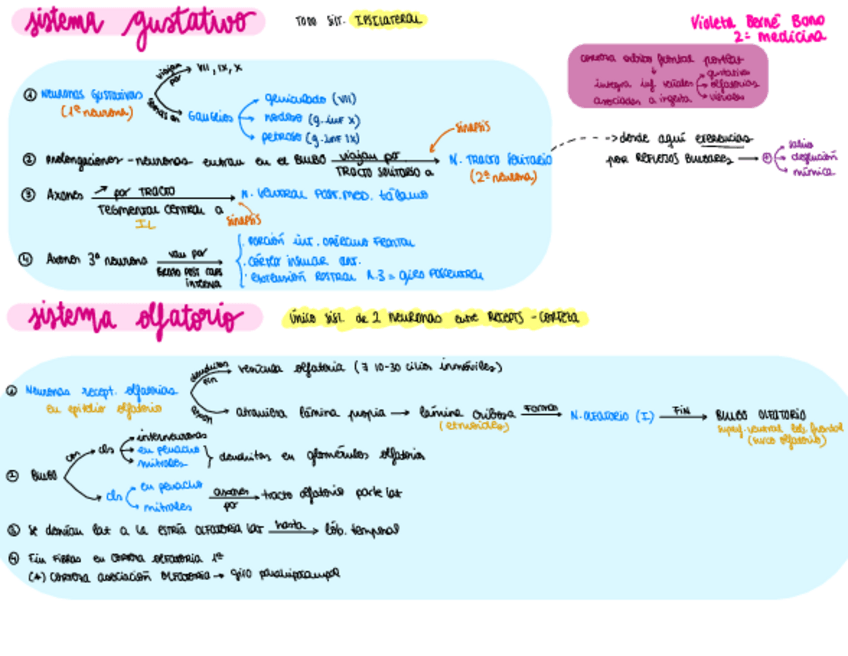 sistema gustativo
TODO SIST. IPSILATERAL
Violeta Berné Bono
2º medicina
corteza orbito frontal posterior
integra inf. viscerales
gustativas
olfatorias
viscerales
asociadas a ingesta
① NEURONAS GUSTATIVAS
(1ª neurona)
viajan por
VII, IX, X
somas en
GANGLIOS
geniculado (VII)
nodoso (g. inf X)
petroso (g. inf IX)
② Prolongaciones-neuronas entran en el BULBO
viajan por
TRACTO SOLITARIO a
sinapsis
N. TRACTO SOLITARIO
(2ª neurona)
--> desde aquí EFERENCIAS
POR REFLEJOS BULBARES
saliva
deglución
mímica
③ Axones
por TRACTO
TEGMENTAL CENTRAL a
IL
N. VENTRAL POST. MED. tálamo
sinapsis
④ Axones 3ª neurona
van por
BRAZO POST CAPS
interna
· PORCIÓN INT. OPÉRCULO FRONTAL
· CÓRTEX INSULAR ANT.
· EXTENSIÓN ROSTRAL A.3 = GIRO POSCENTRAL
sistema olfatorio
ÚNICO SIST. de 2 NEURONAS entre RECEPTS - CORTEZA
① Neuronas recept. olfatorias
en epitelio olfatorio
dendritas
fin
vesícula olfatoria (∃ 10-30 cilios inmóviles)
axon
atraviesa lámina propia → lámina cribosa
(etmoides)
FORMAN
N. OLFATORIO (I)
FIN
BULBO OLFATORIO
superf. ventral lób. frontal
(surco olfatorio)
② BULBO
con
cls
interneuronas
en penacho
mitrales
dendritas en glomérulos olfatorios
cls
en penacho
mitrales
axones
por
tracto olfatorio parte lat
③ Se desvían lat a la ESTRÍA OLFATORIA LAT
hasta
lób. temporal
④ Fin FIBRAS en CORTEZA OLFATORIA 1ª
(+) CORTEZA ASOCIACIÓN OLFATORIA → giro parahipocampal